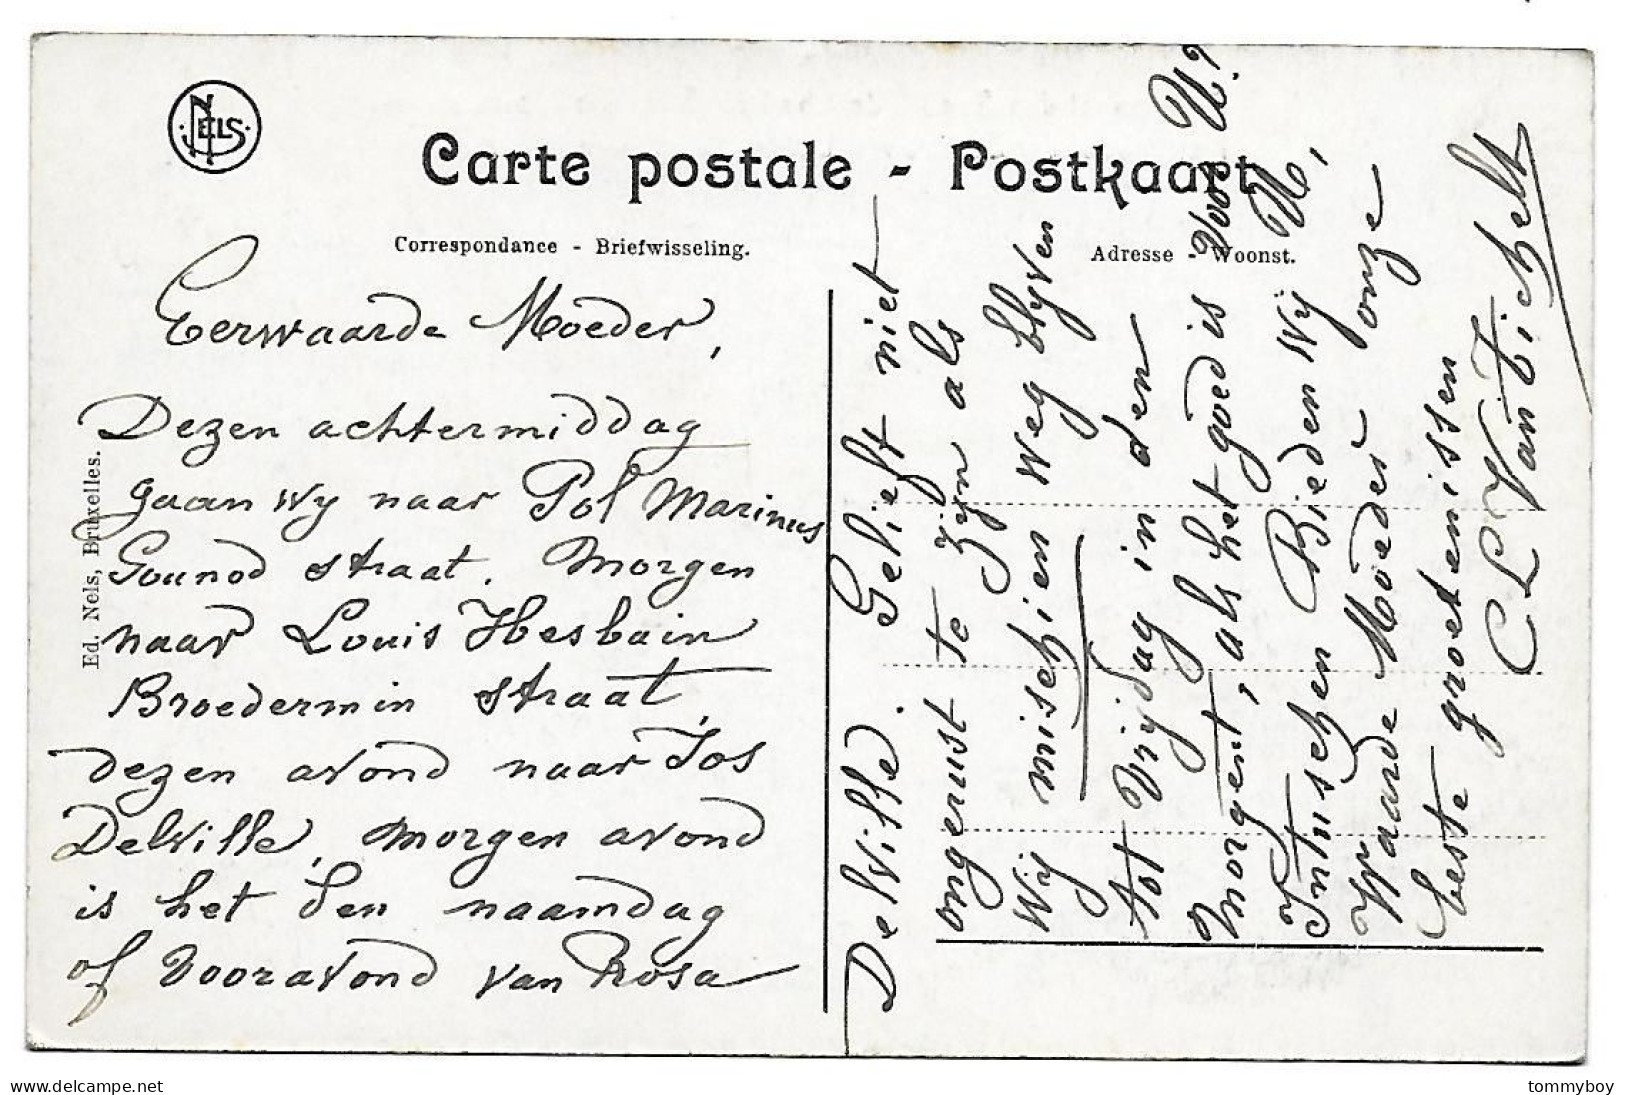 NELS
Carte postale - Postkaart
Correspondance - Briefwisseling.
Adresse - Woonst.
Ed. Nels, Bruxelles.
Eerwaarde Moeder,
Dezen achtermiddag
gaan wy naar Pol Marinus
Gounod straat. Morgen
naar Louis Hesbain
Broedermin straat,
dezen avond naar Jos
Delville, morgen avond
is het den naamdag
of vooravond van Rosa
Delville. Gelieft niet
ongerust te zyn als
Wij mischien weg blyven
tot Vrijdag in den
morgent, als het goed is voor U?
Intuschen Bieden wij U,
Waarde Moeder onze
beste groetenissen
C L Van Tichelt
delcampe.net
tommyboy